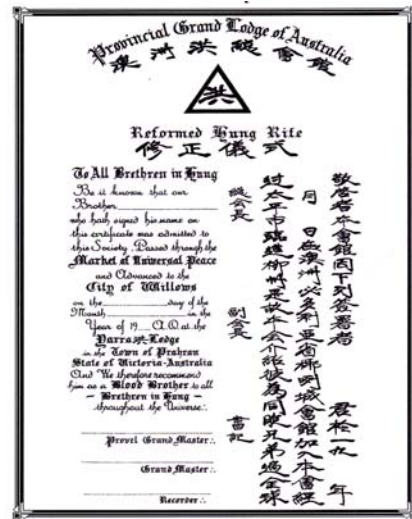 Provincial Grand Lodge of Australia
澳洲洪總會館
洪
Reformed Hung Rite
修正儀式
To All Brethren in Hung
Be it known that our
Brother
who hath signed his name on
this certificate was admitted to
this Society. Passed through the
Market of Universal Peace
and Advanced to the
City of Willows
on the day of the
Month in the
Year of 19 A.D. at the
Yarra 洪 Lodge
in the Town of Prahran
State of Victoria-Australia
And We therefore recommend
him as a Blood Brother to all
– Brethren in Hung –
throughout the Universe:.
Provcl Grand Master:.
Grand Master:.
Recorder:.
敬啓者本會館因下列簽署者 君於一九 年
月 日在澳洲必多利亞省 城會館加入本會經
過太平市 進 州是故本會介紹彼為同 兄弟 全球
總會長
副會長
書記